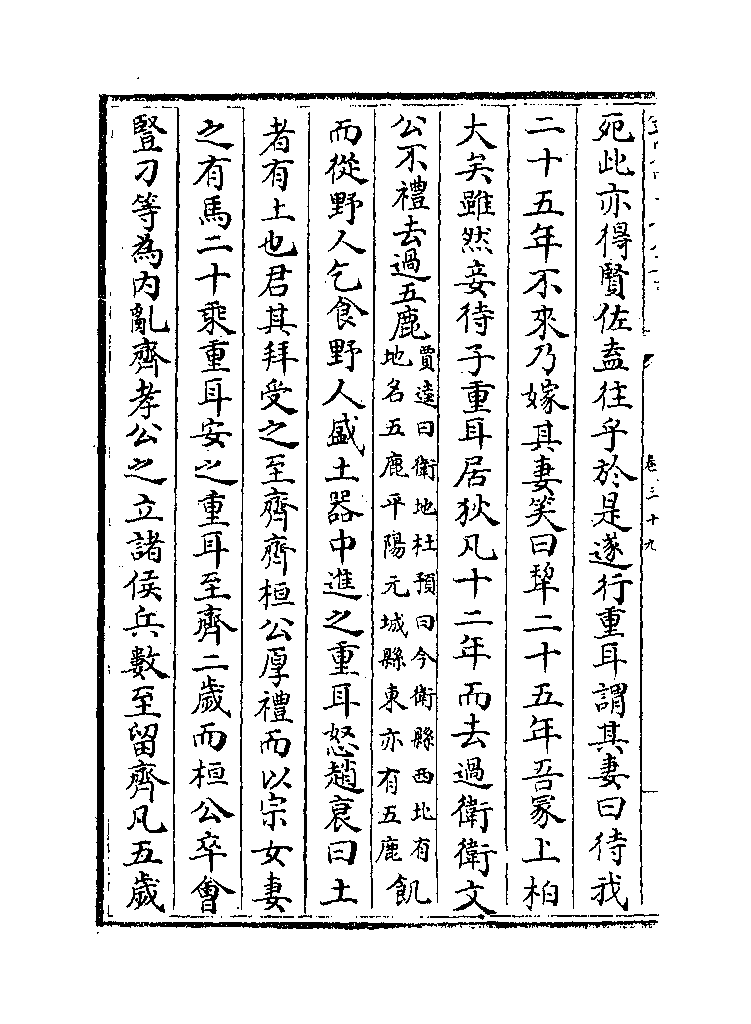 卷三十九
死此亦得賢佐盍往乎於是遂行重耳謂其妻曰待我
二十五年不來乃嫁其妻笑曰犂二十五年吾冢上柏
大矣雖然妾待子重耳居狄凡十二年而去過衛衛文
公不禮去過五鹿賈逵曰衛地杜預曰今衛縣西北有地名五鹿平陽元城縣東亦有五鹿飢
而從野人乞食野人盛土器中進之重耳怒趙衰曰土
者有土也君其拜受之至齊齊桓公厚禮而以宗女妻
之有馬二十乘重耳安之重耳至齊二歲而桓公卒會
豎刁等為內亂齊孝公之立諸侯兵數至留齊凡五歲